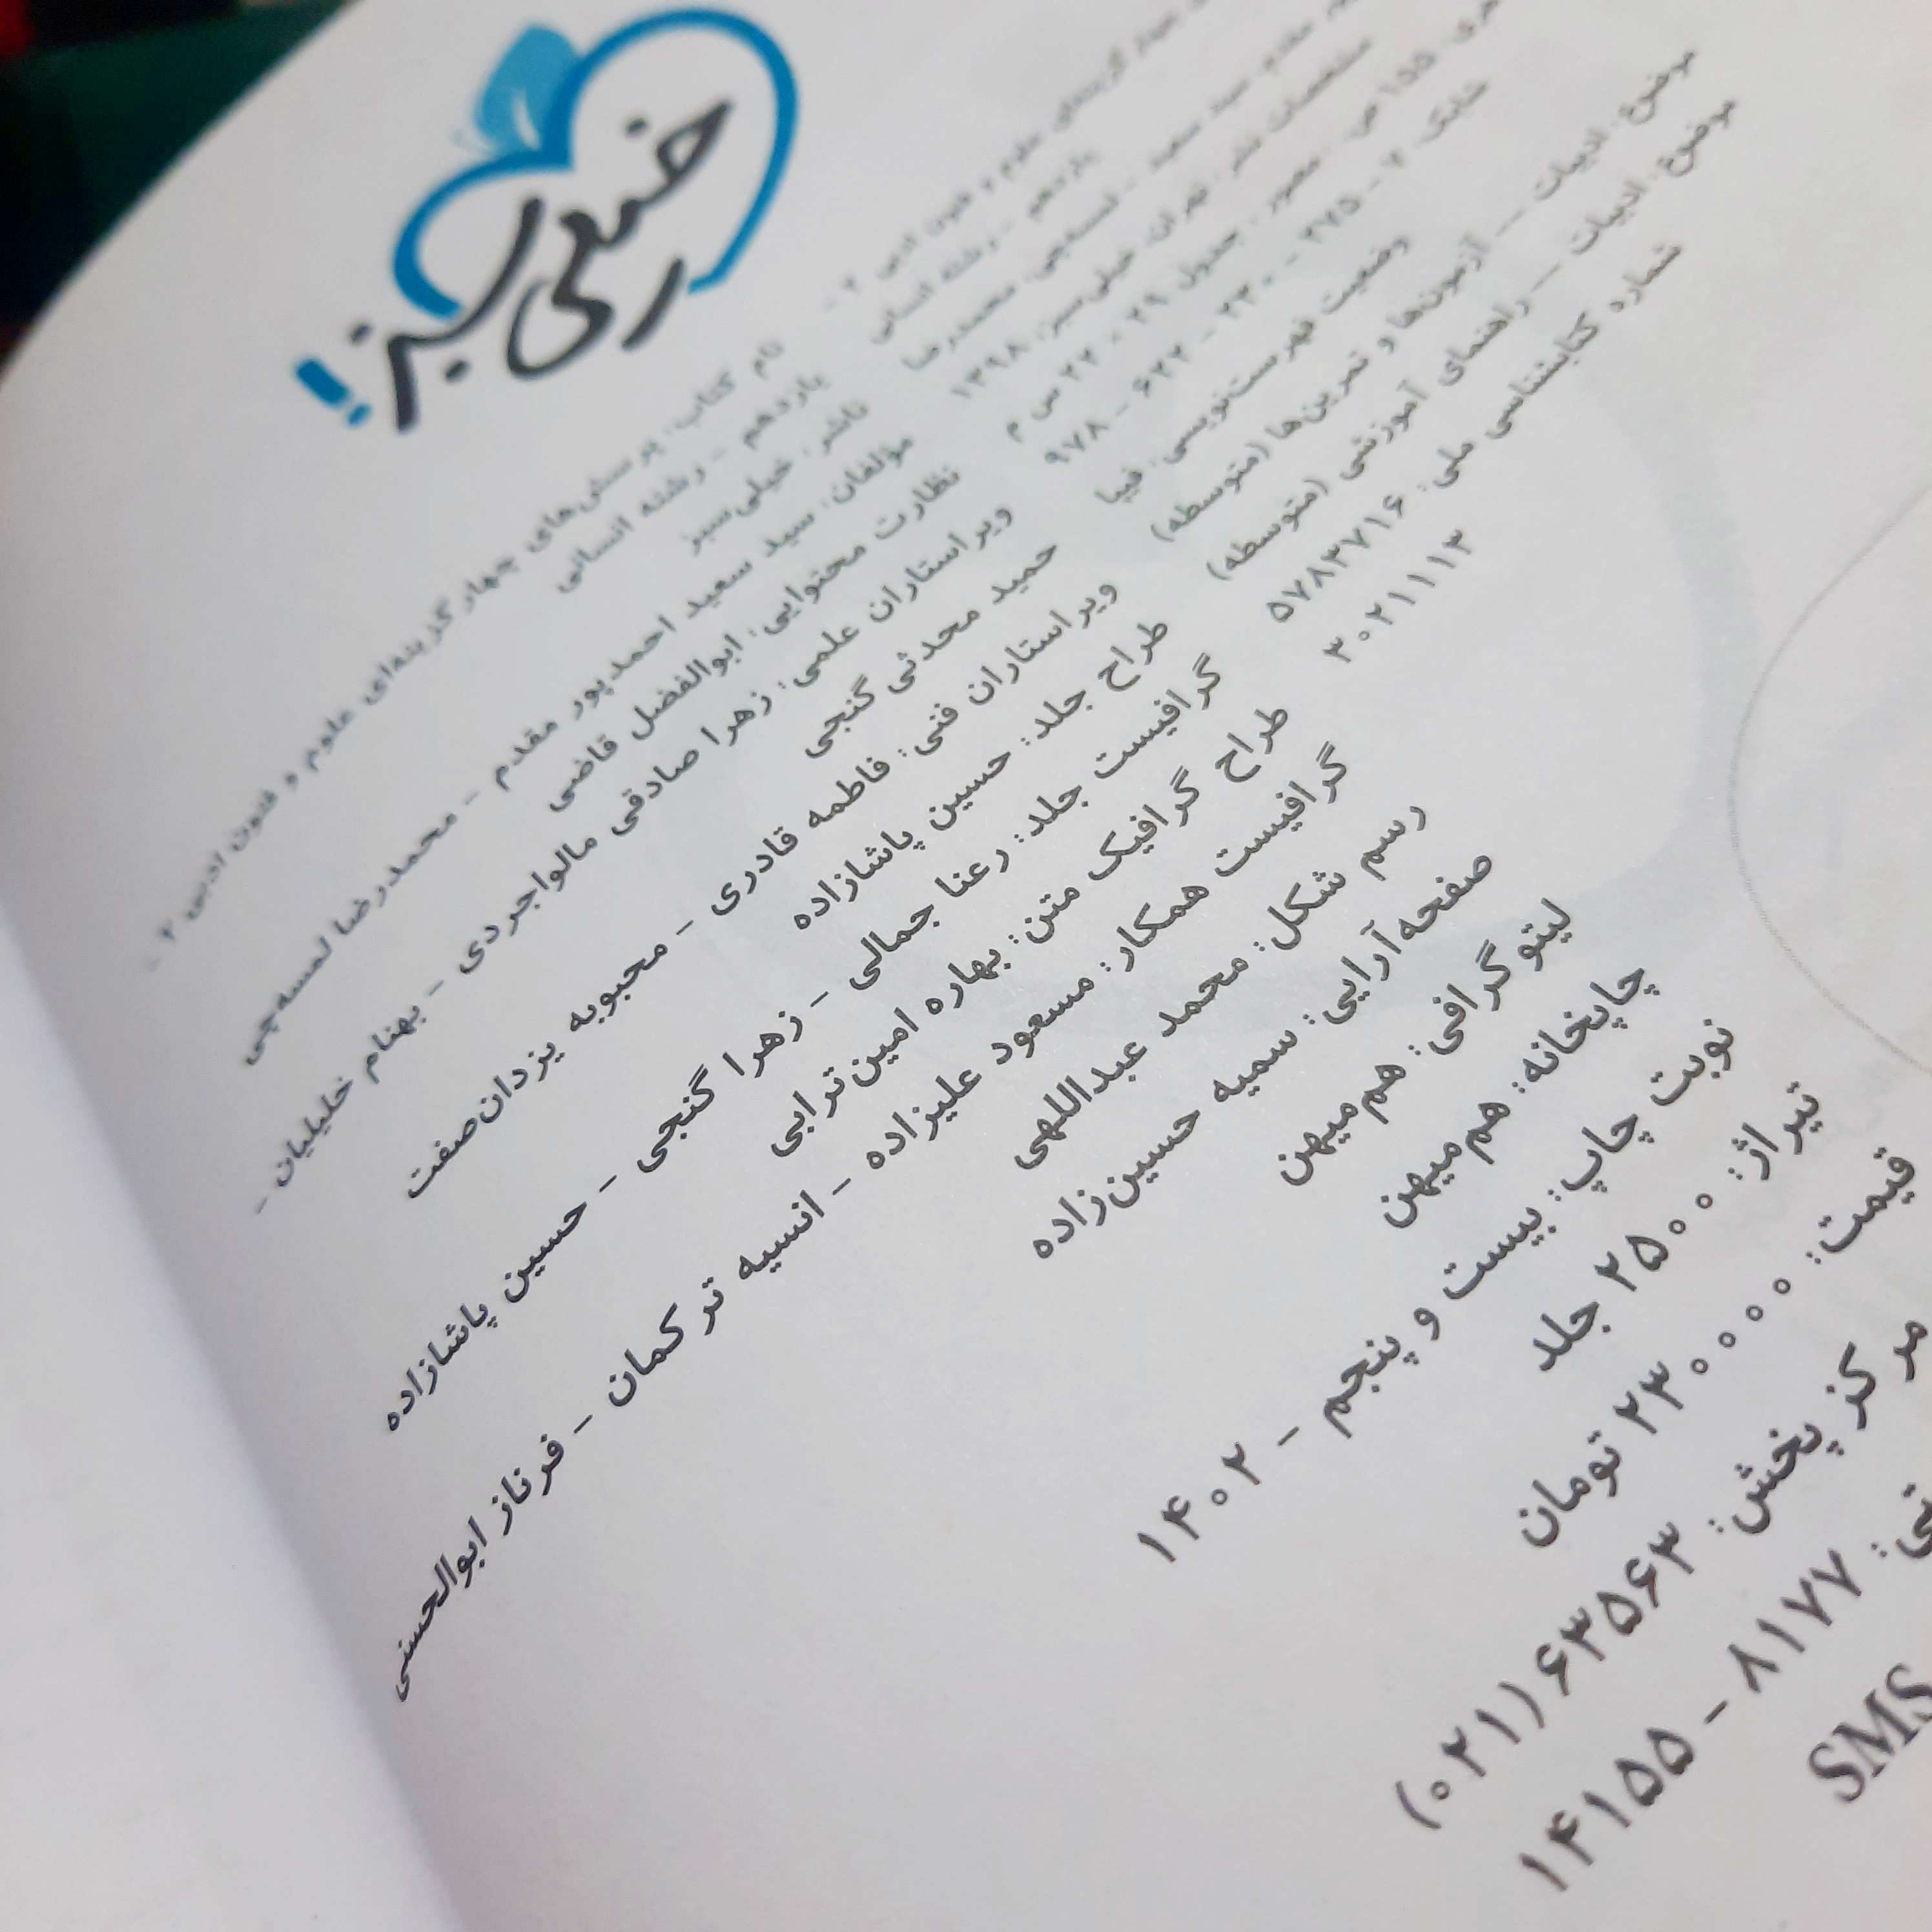 خیلی سبز!
یازدهم - رشته انسانی
مقدم، سید سعید - لمسه‌چی، محمدرضا
مشخصات نشر: تهران، خیلی‌سبز، ۱۳۹۸
۱۵۵ ص. مصور. جدول ۲۹ - ۲۲ س م
شابک ۲ - ۲۷۵ - ۲۳۰ - ۶۲۲ - ۹۷۸
وضعیت فهرست‌نویسی: فیپا
موضوع: ادبیات -- آزمون‌ها و تمرین‌ها (متوسطه)
موضوع: ادبیات -- راهنمای آموزشی (متوسطه)
شماره کتابشناسی ملی: ۵۷۸۳۷۱۶
۳۰۲۱۱۱۳
نام کتاب: پرسش‌های چهارگزینه‌ای علوم و فنون ادبی ۲ -
یازدهم - رشته انسانی
ناشر: خیلی‌سبز
مؤلفان: سید سعید احمدپور مقدم - محمدرضا لمسه‌چی
نظارت محتوایی: ابوالفضل قاضی
ویراستاران علمی: زهرا صادقی مالواجردی - بهنام خلیلیان -
حمید محدثی گنجی
ویراستاران فنی: فاطمه قادری - محبوبه یزدان‌صفت
طراح جلد: حسین پاشازاده
گرافیست جلد: رعنا جمالی - زهرا گنجی - حسین پاشازاده
طراح گرافیک متن: بهاره امین‌ترابی
گرافیست همکار: مسعود علیزاده - انسیه ترکمان - فرناز ابوالحسنی
رسم شکل: محمد عبداللهی
صفحه‌آرایی: سمیه حسین‌زاده
لیتوگرافی: هم‌میهن
چاپخانه: هم‌میهن
نوبت چاپ: بیست و پنجم - ۱۴۰۲
تیراژ: ۲۵۰۰ جلد
قیمت: ۲۳۰۰۰۰ تومان
مرکز پخش: ۶۳۵۶۳ (۰۲۱)
۸۱۷۷ - ۱۴۱۵۵
SMS